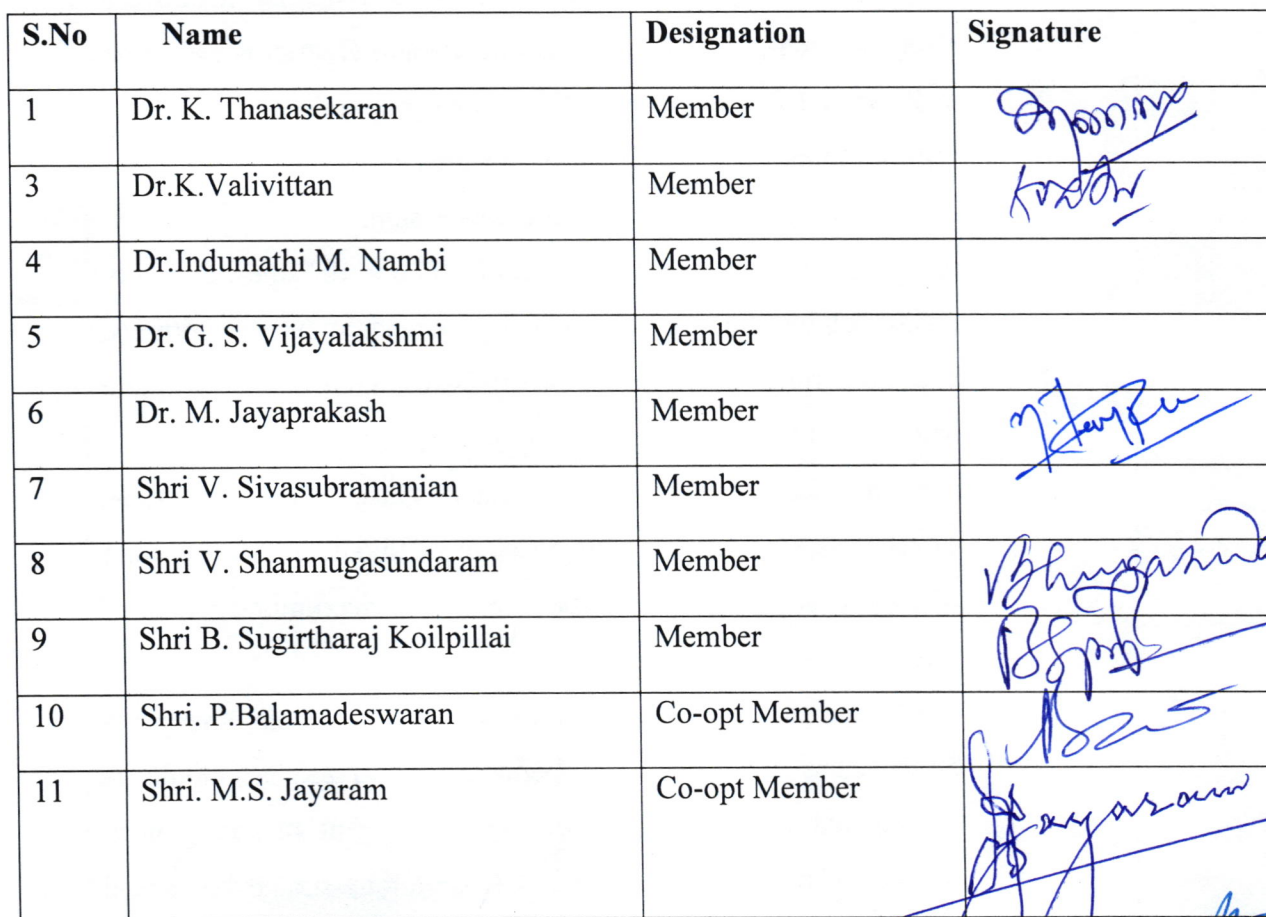 S.No Name Designation Signature
1 Dr. K. Thanasekaran Member
3 Dr.K.Valivittan Member
4 Dr.Indumathi M. Nambi Member
5 Dr. G. S. Vijayalakshmi Member
6 Dr. M. Jayaprakash Member
7 Shri V. Sivasubramanian Member
8 Shri V. Shanmugasundaram Member
9 Shri B. Sugirtharaj Koilpillai Member
10 Shri. P.Balamadeswaran Co-opt Member
11 Shri. M.S. Jayaram Co-opt Member